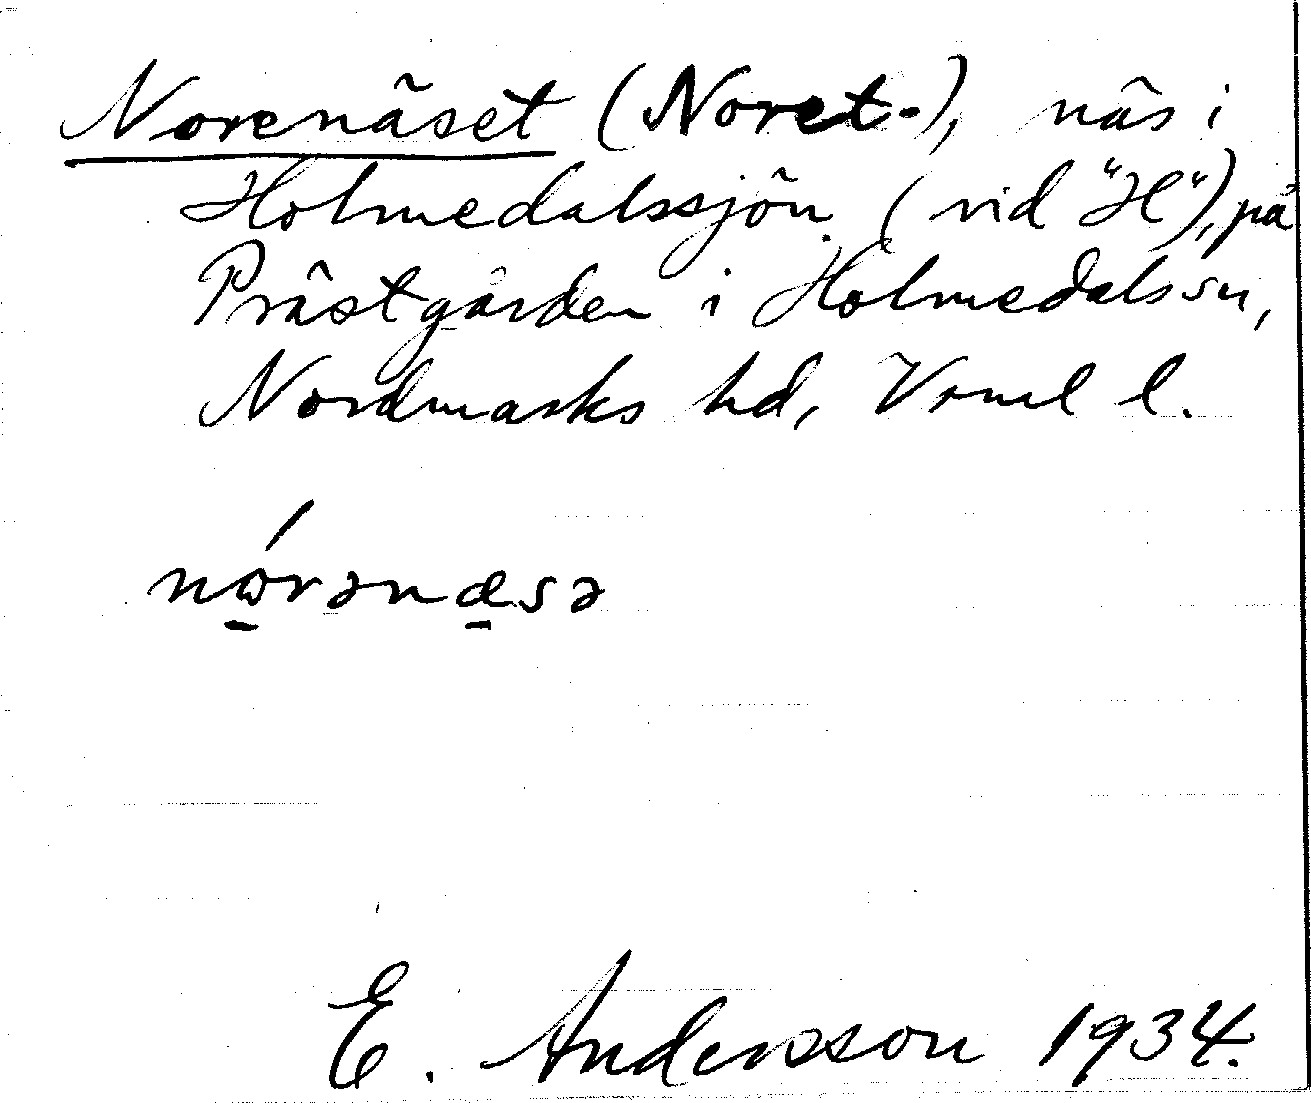 Norenäset (Noret-), näs i
Holmedalssjön (vid "H"), på
Prästgården i Holmedals sn,
Nordmarks hd, Vrml l.
nώ̲rənæ̲sə
E. Andersson 1934.